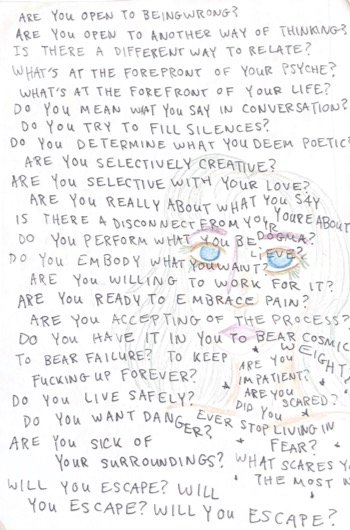 ARE YOU OPEN TO BEING WRONG?
ARE YOU OPEN TO ANOTHER WAY OF THINKING?
IS THERE A DIFFERENT WAY TO RELATE?
WHAT'S AT THE FOREPRONT OF YOUR PSYCHE?
WHAT'S AT THE FOREFRONT OF YOUR LIFE?
DO YOU MEAN WHAT YOU SAY IN CONVERSATION?
DO YOU TRY TO FILL SILENCES?
DO YOU DETERMINE WHAT YOU DEEM POETIC
ARE YOU SELECTIVELY CREATIVE?
ARE YOU SELECTIVE WITH YOUR LOVE?
ARE YOU REALLY ABOUT WHAT YOU SAY
YOU'RE ABOUT
IS THERE A DISCONNECT FROM YOUR
DOGMA?
DO YOU PERFORM WHAT YOU BE
LIEVE?
DO YOU EMBODY WHAT YOU WANT?
ARE YOU WILLING TO WORK FOR IT?
ARE YOU READY TO EMBRACE PAIN?
ARE YOU ACCEPTING OF THE PROCESS?
DO YOU HAVE IT IN YOU TO BEAR COSMIC
WEIGHT,
TO BEAR FAILURE? TO KEEP
FUCKING UP FOREVER?
ARE YOU
IMPATIENT?
ARE YOU
SCARED?
DO YOU LIVE SAFELY?
DO YOU WANT DANGER?
DID YOU
EVER STOP LIVING IN
FEAR?
ARE YOU SICK OF
YOUR SURROUNDINGS?
WHAT SCARES Y
THE MOST N
WILL YOU ESCAPE? WILL
YOU ESCAPE? WILL YOU ESCAPE?